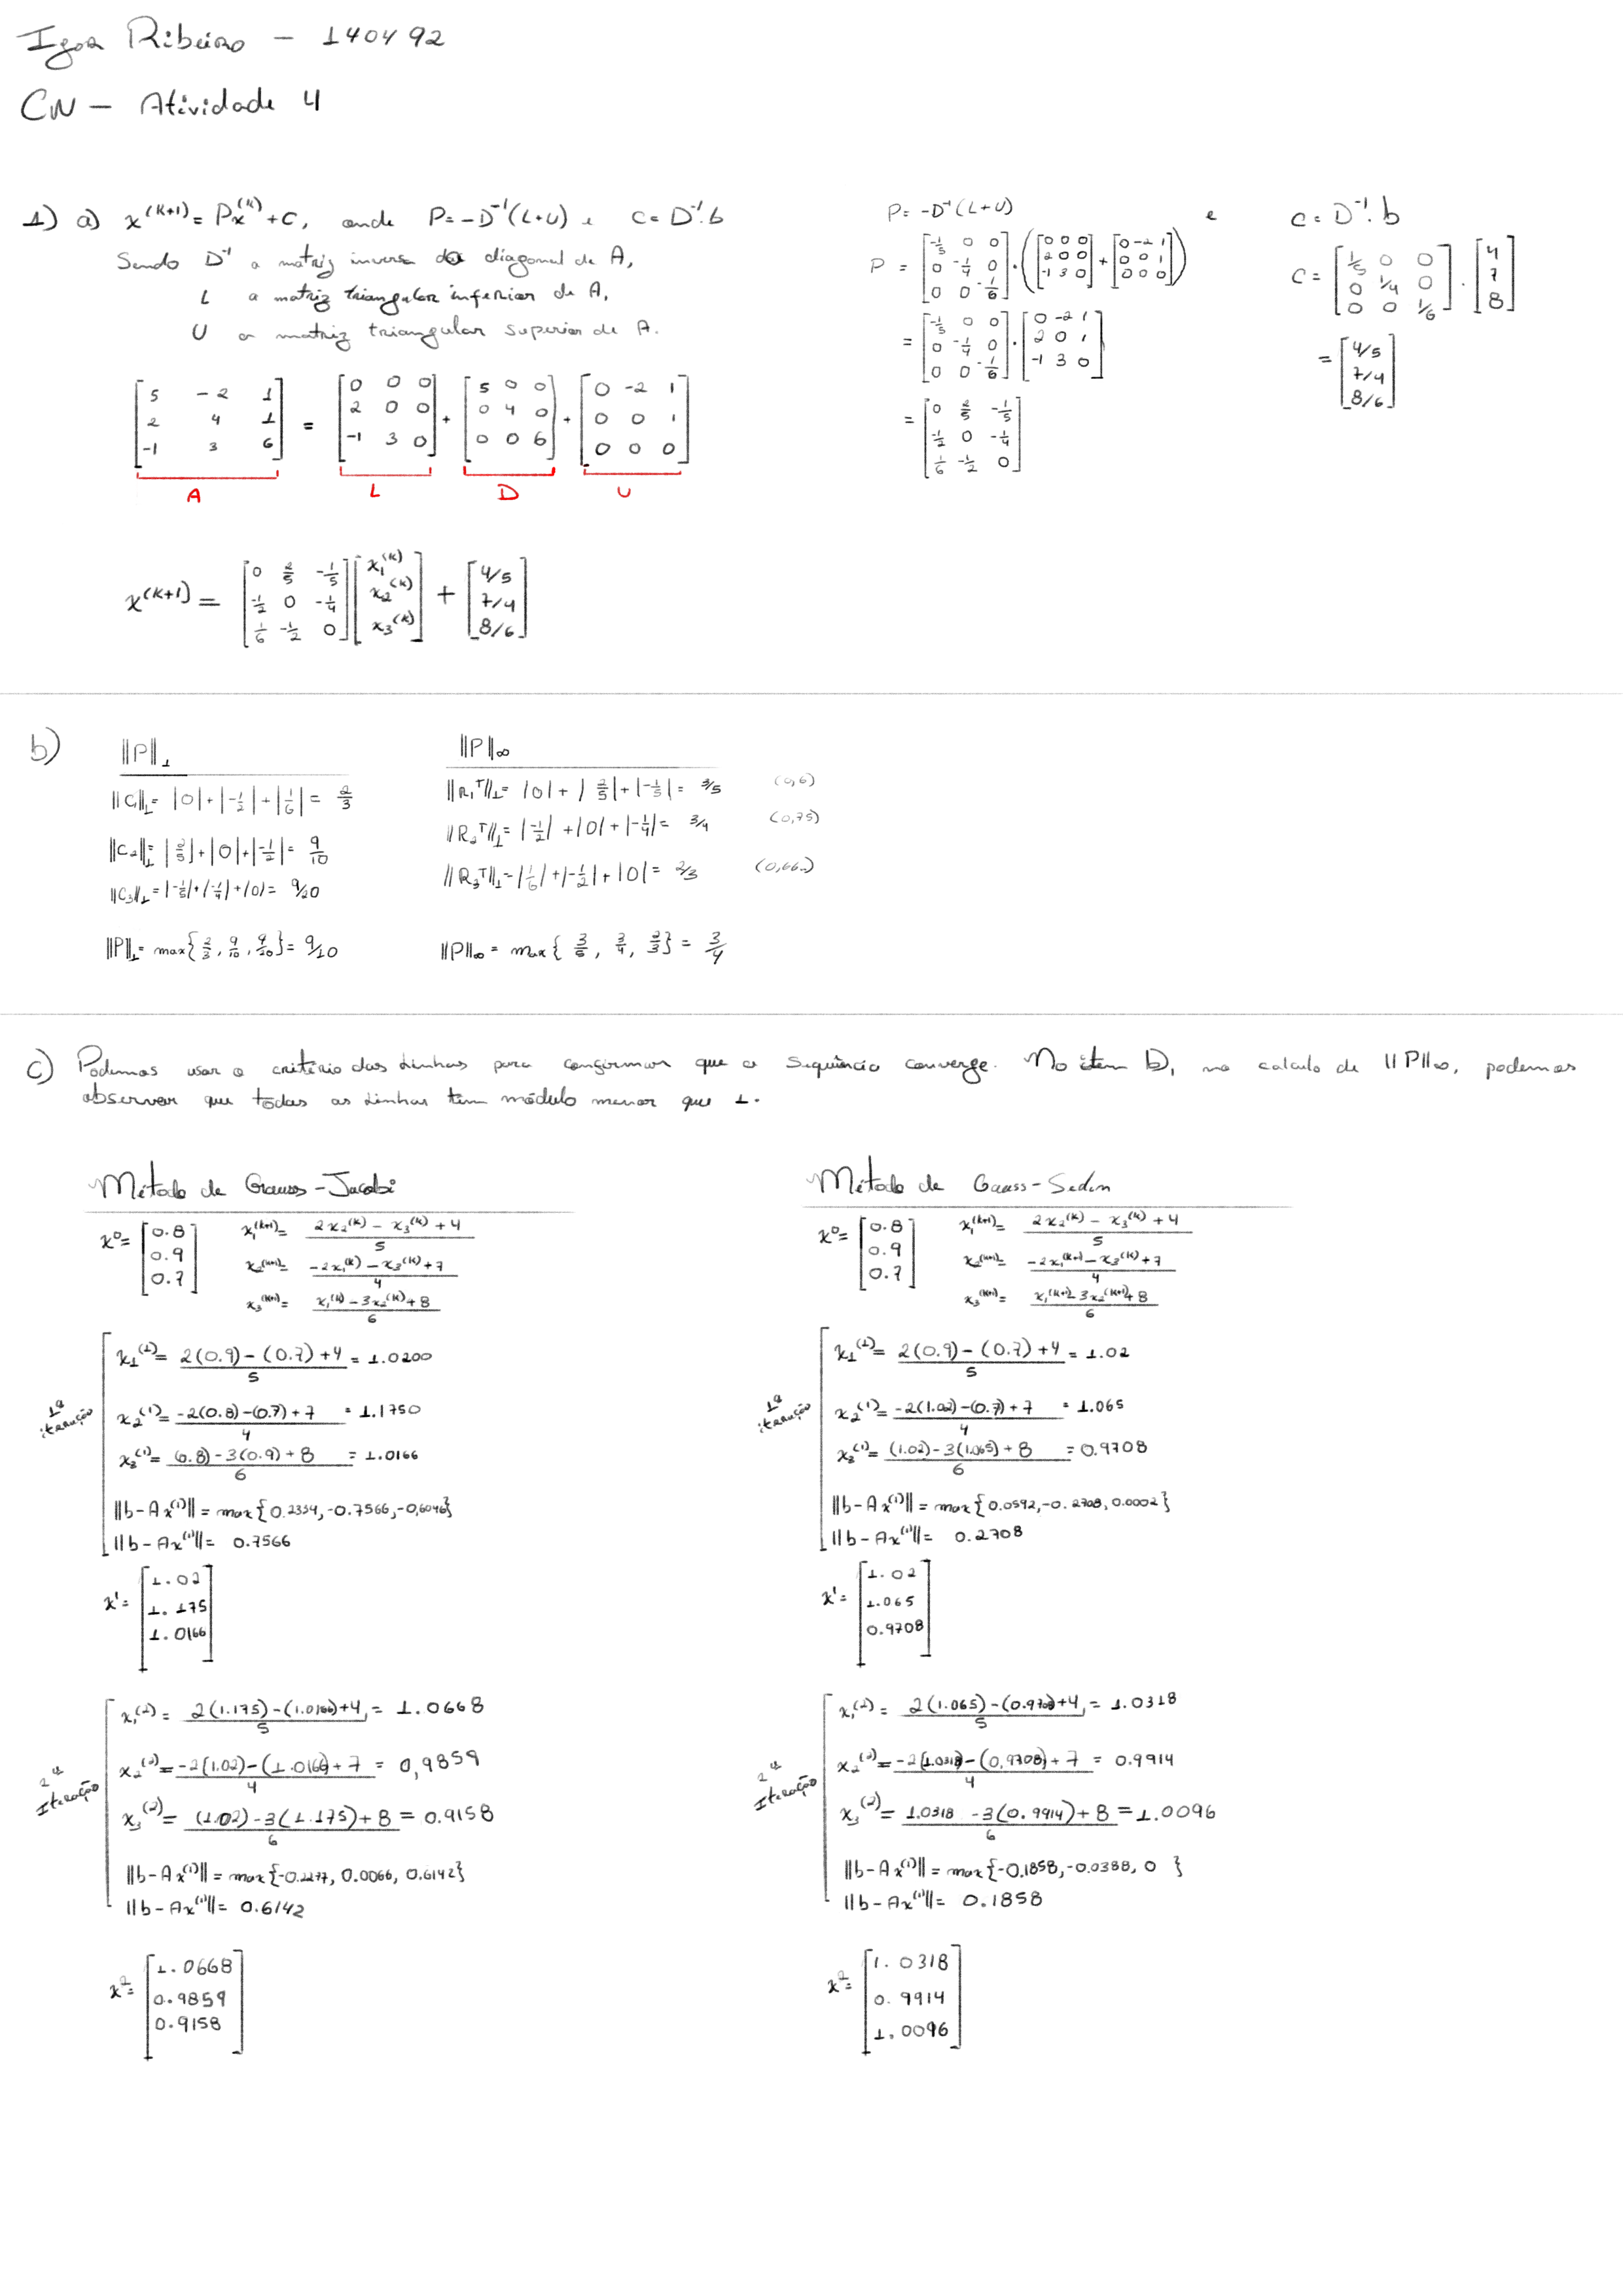 Igor Ribeiro - 140492
CN - Atividade 4
1) a) x^(k+1) = Px^(k) + C, onde P = -D^-1(L+U) e C = D^-1.b
Sendo D^-1 a matriz inversa da diagonal de A,
L a matriz triangular inferior de A,
U a matriz triangular superior de A.
[5 -2 1; 2 4 1; -1 3 6] = [0 0 0; 2 0 0; -1 3 0] + [5 0 0; 0 4 0; 0 0 6] + [0 -2 1; 0 0 1; 0 0 0]
A L D U
P = -D^-1(L+U) e
P = [-1/5 0 0; 0 -1/4 0; 0 0 -1/6] . ([0 0 0; 2 0 0; -1 3 0] + [0 -2 1; 0 0 1; 0 0 0])
= [-1/5 0 0; 0 -1/4 0; 0 0 -1/6] . [0 -2 1; 2 0 1; -1 3 0]
= [0 2/5 -1/5; -1/2 0 -1/4; 1/6 -1/2 0]
C = D^-1.b
C = [1/5 0 0; 0 1/4 0; 0 0 1/6] . [4; 7; 8]
= [4/5; 7/4; 8/6]
x^(k+1) = [0 2/5 -1/5; -1/2 0 -1/4; 1/6 -1/2 0] [x1^(k); x2^(k); x3^(k)] + [4/5; 7/4; 8/6]
b) ||P||1
||C1||1 = |0| + |-1/2| + |1/6| = 2/3
||C2||1 = |2/5| + |0| + |-1/2| = 9/10
||C3||1 = |-1/5| + |-1/4| + |0| = 9/20
||P||1 = max{2/3, 9/10, 9/20} = 9/10
||P||∞
||R1^T||1 = |0| + |2/5| + |-1/5| = 3/5 (0,6)
||R2^T||1 = |-1/2| + |0| + |-1/4| = 3/4 (0,75)
||R3^T||1 = |1/6| + |-1/2| + |0| = 2/3 (0,66..)
||P||∞ = max{3/5, 3/4, 2/3} = 3/4
c) Podemos usar o critério das Linhas para confirmar que a sequência converge. No item b, no calculo de ||P||∞, podemos
observar que todas as Linhas tem módulo menor que 1.
Método de Gauss-Jacobi
x^0 = [0.8; 0.9; 0.7]
x1^(k+1) = (2x2^(k) - x3^(k) + 4)/5
x2^(k+1) = (-2x1^(k) - x3^(k) + 7)/4
x3^(k+1) = (x1^(k) - 3x2^(k) + 8)/6
1ª iteração
x1^(1) = (2(0.9) - (0.7) + 4)/5 = 1.0200
x2^(1) = (-2(0.8) - (0.7) + 7)/4 = 1.1750
x3^(1) = ((0.8) - 3(0.9) + 8)/6 = 1.0166
||b - Ax^(1)|| = max{0.2334, -0.7566, -0,6046}
||b - Ax^(1)|| = 0.7566
x^1 = [1.02; 1.175; 1.0166]
2ª Iteração
x1^(2) = (2(1.175) - (1.0166) + 4)/5 = 1.0668
x2^(2) = (-2(1.02) - (1.0166) + 7)/4 = 0,9859
x3^(2) = ((1.02) - 3(1.175) + 8)/6 = 0.9158
||b - Ax^(1)|| = max{-0.2277, 0.0066, 0.6142}
||b - Ax^(1)|| = 0.6142
x^2 = [1.0668; 0.9859; 0.9158]
Método de Gauss-
x^0 = [0.8; 0.9; 0.7]
x1^(k+1) = (2x2^(k) - x3^(k) + 4)/5
x2^(k+1) = (-2x1^(k+1) - x3^(k) + 7)/4
x3^(k+1) = (x1^(k+1) - 3x2^(k+1) + 8)/6
1ª iteração
x1^(1) = (2(0.9) - (0.7) + 4)/5 = 1.02
x2^(1) = (-2(1.02) - (0.7) + 7)/4 = 1.065
x3^(1) = ((1.02) - 3(1.065) + 8)/6 = 0.9708
||b - Ax^(1)|| = max{0.0592, -0.2708, 0.0002}
||b - Ax^(1)|| = 0.2708
x^1 = [1.02; 1.065; 0.9708]
2ª Iteração
x1^(2) = (2(1.065) - (0.9708) + 4)/5 = 1.0318
x2^(2) = (-2(1.0318) - (0,9708) + 7)/4 = 0.9914
x3^(2) = (1.0318 - 3(0.9914) + 8)/6 = 1.0096
||b - Ax^(1)|| = max{-0.1858, -0.0388, 0}
||b - Ax^(1)|| = 0.1858
x^2 = [1.0318; 0.9914; 1.0096]